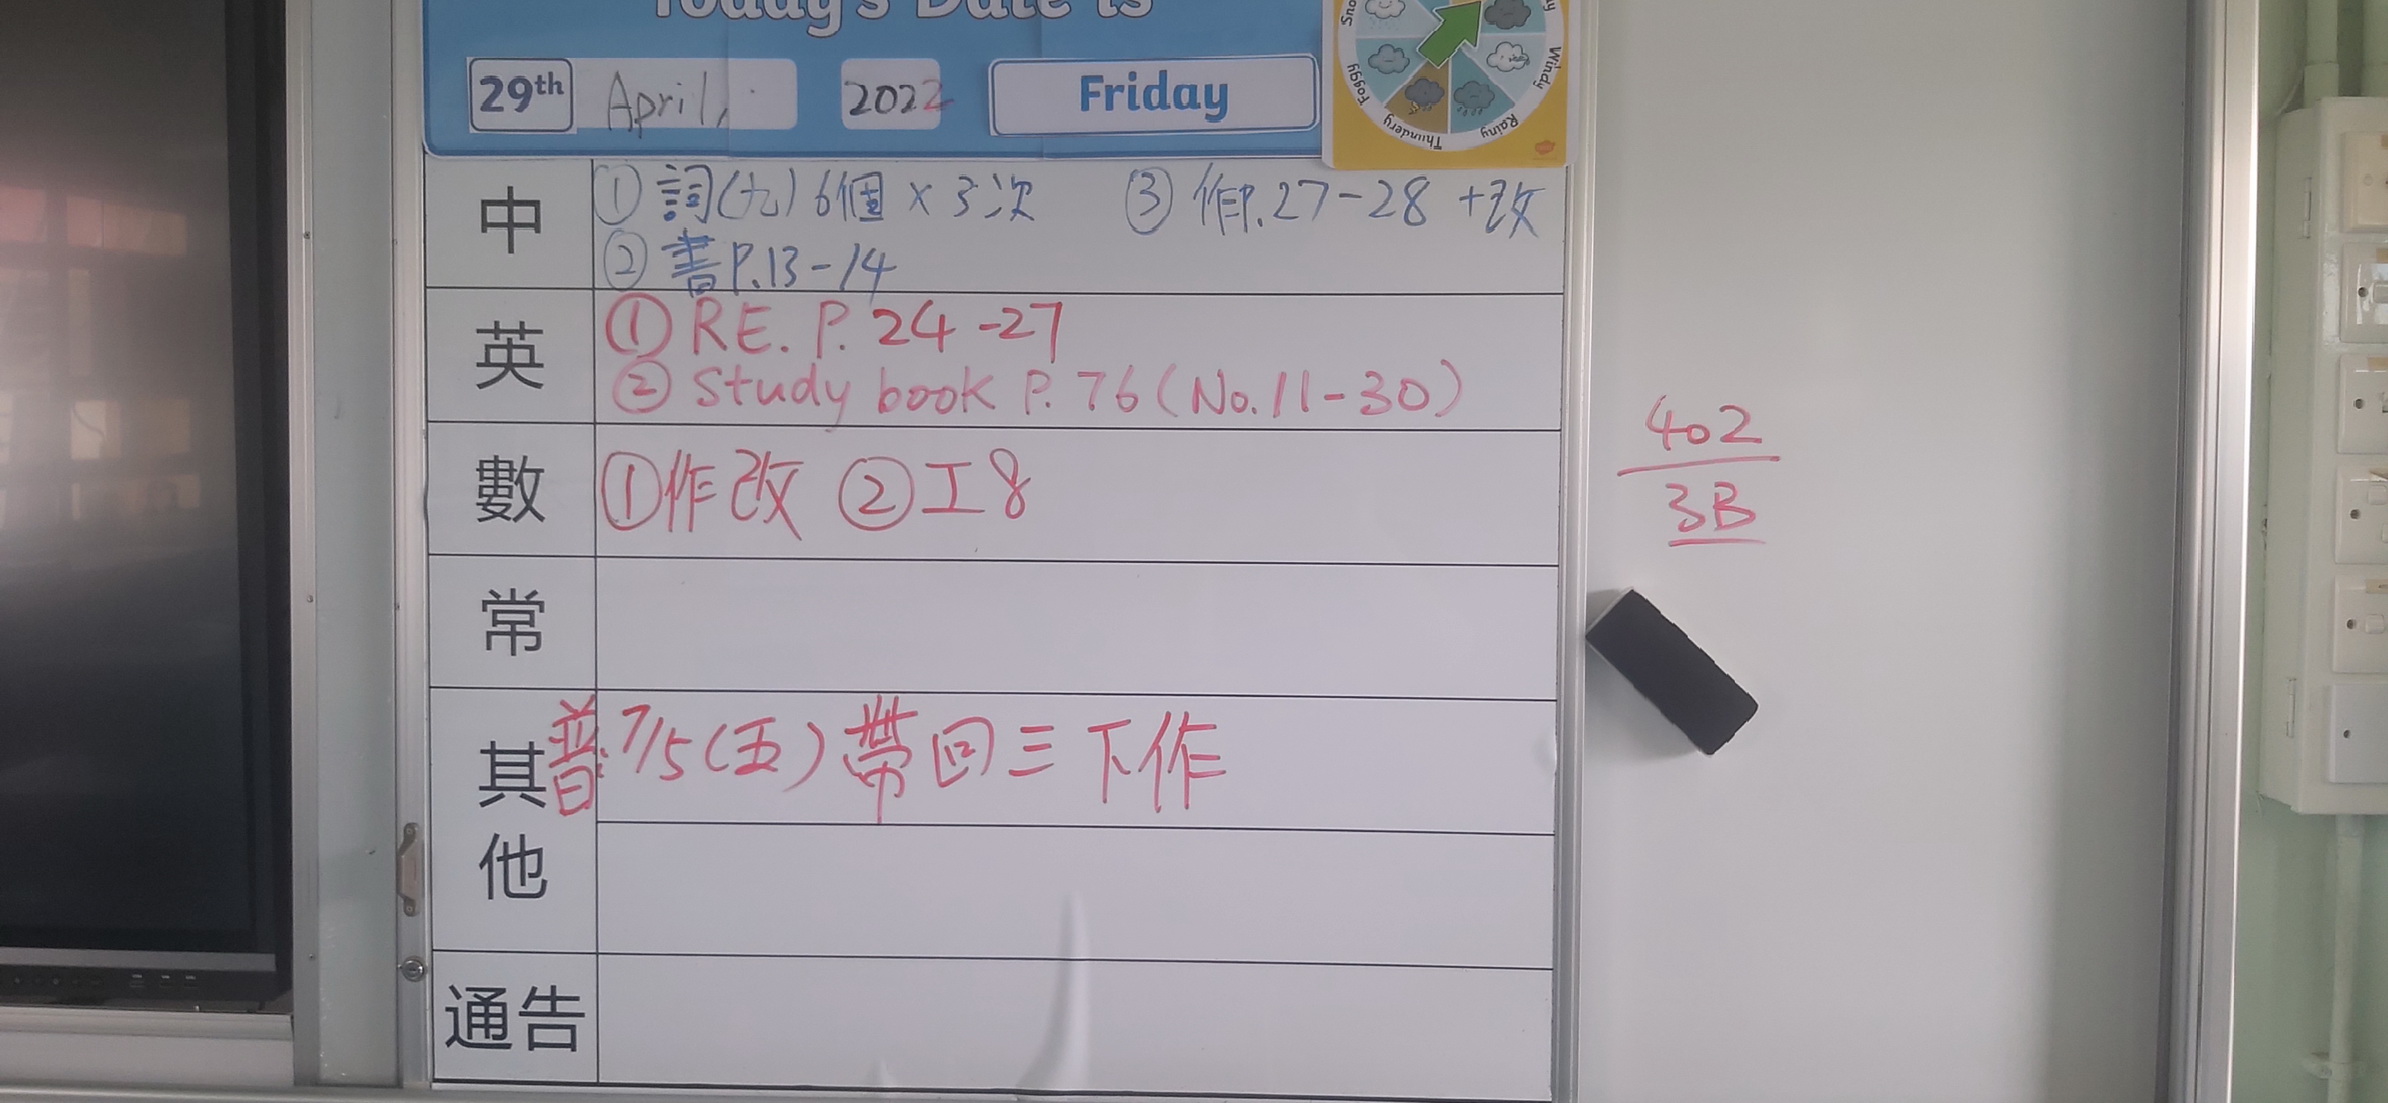 Today's Date is
29th April, 2022 Friday
Foggy
Thundery
Rainy
Windy
中 ① 詞(九) 6個 x 3次 ③ 作P.27-28 +改
② 書P.13-14
英 ① RE. P. 24-27
② Study book P. 76 (No. 11-30)
數 ①作改 ②工8
常
其他 普: 7/5(五) 帶回三下作
通告
402
3B